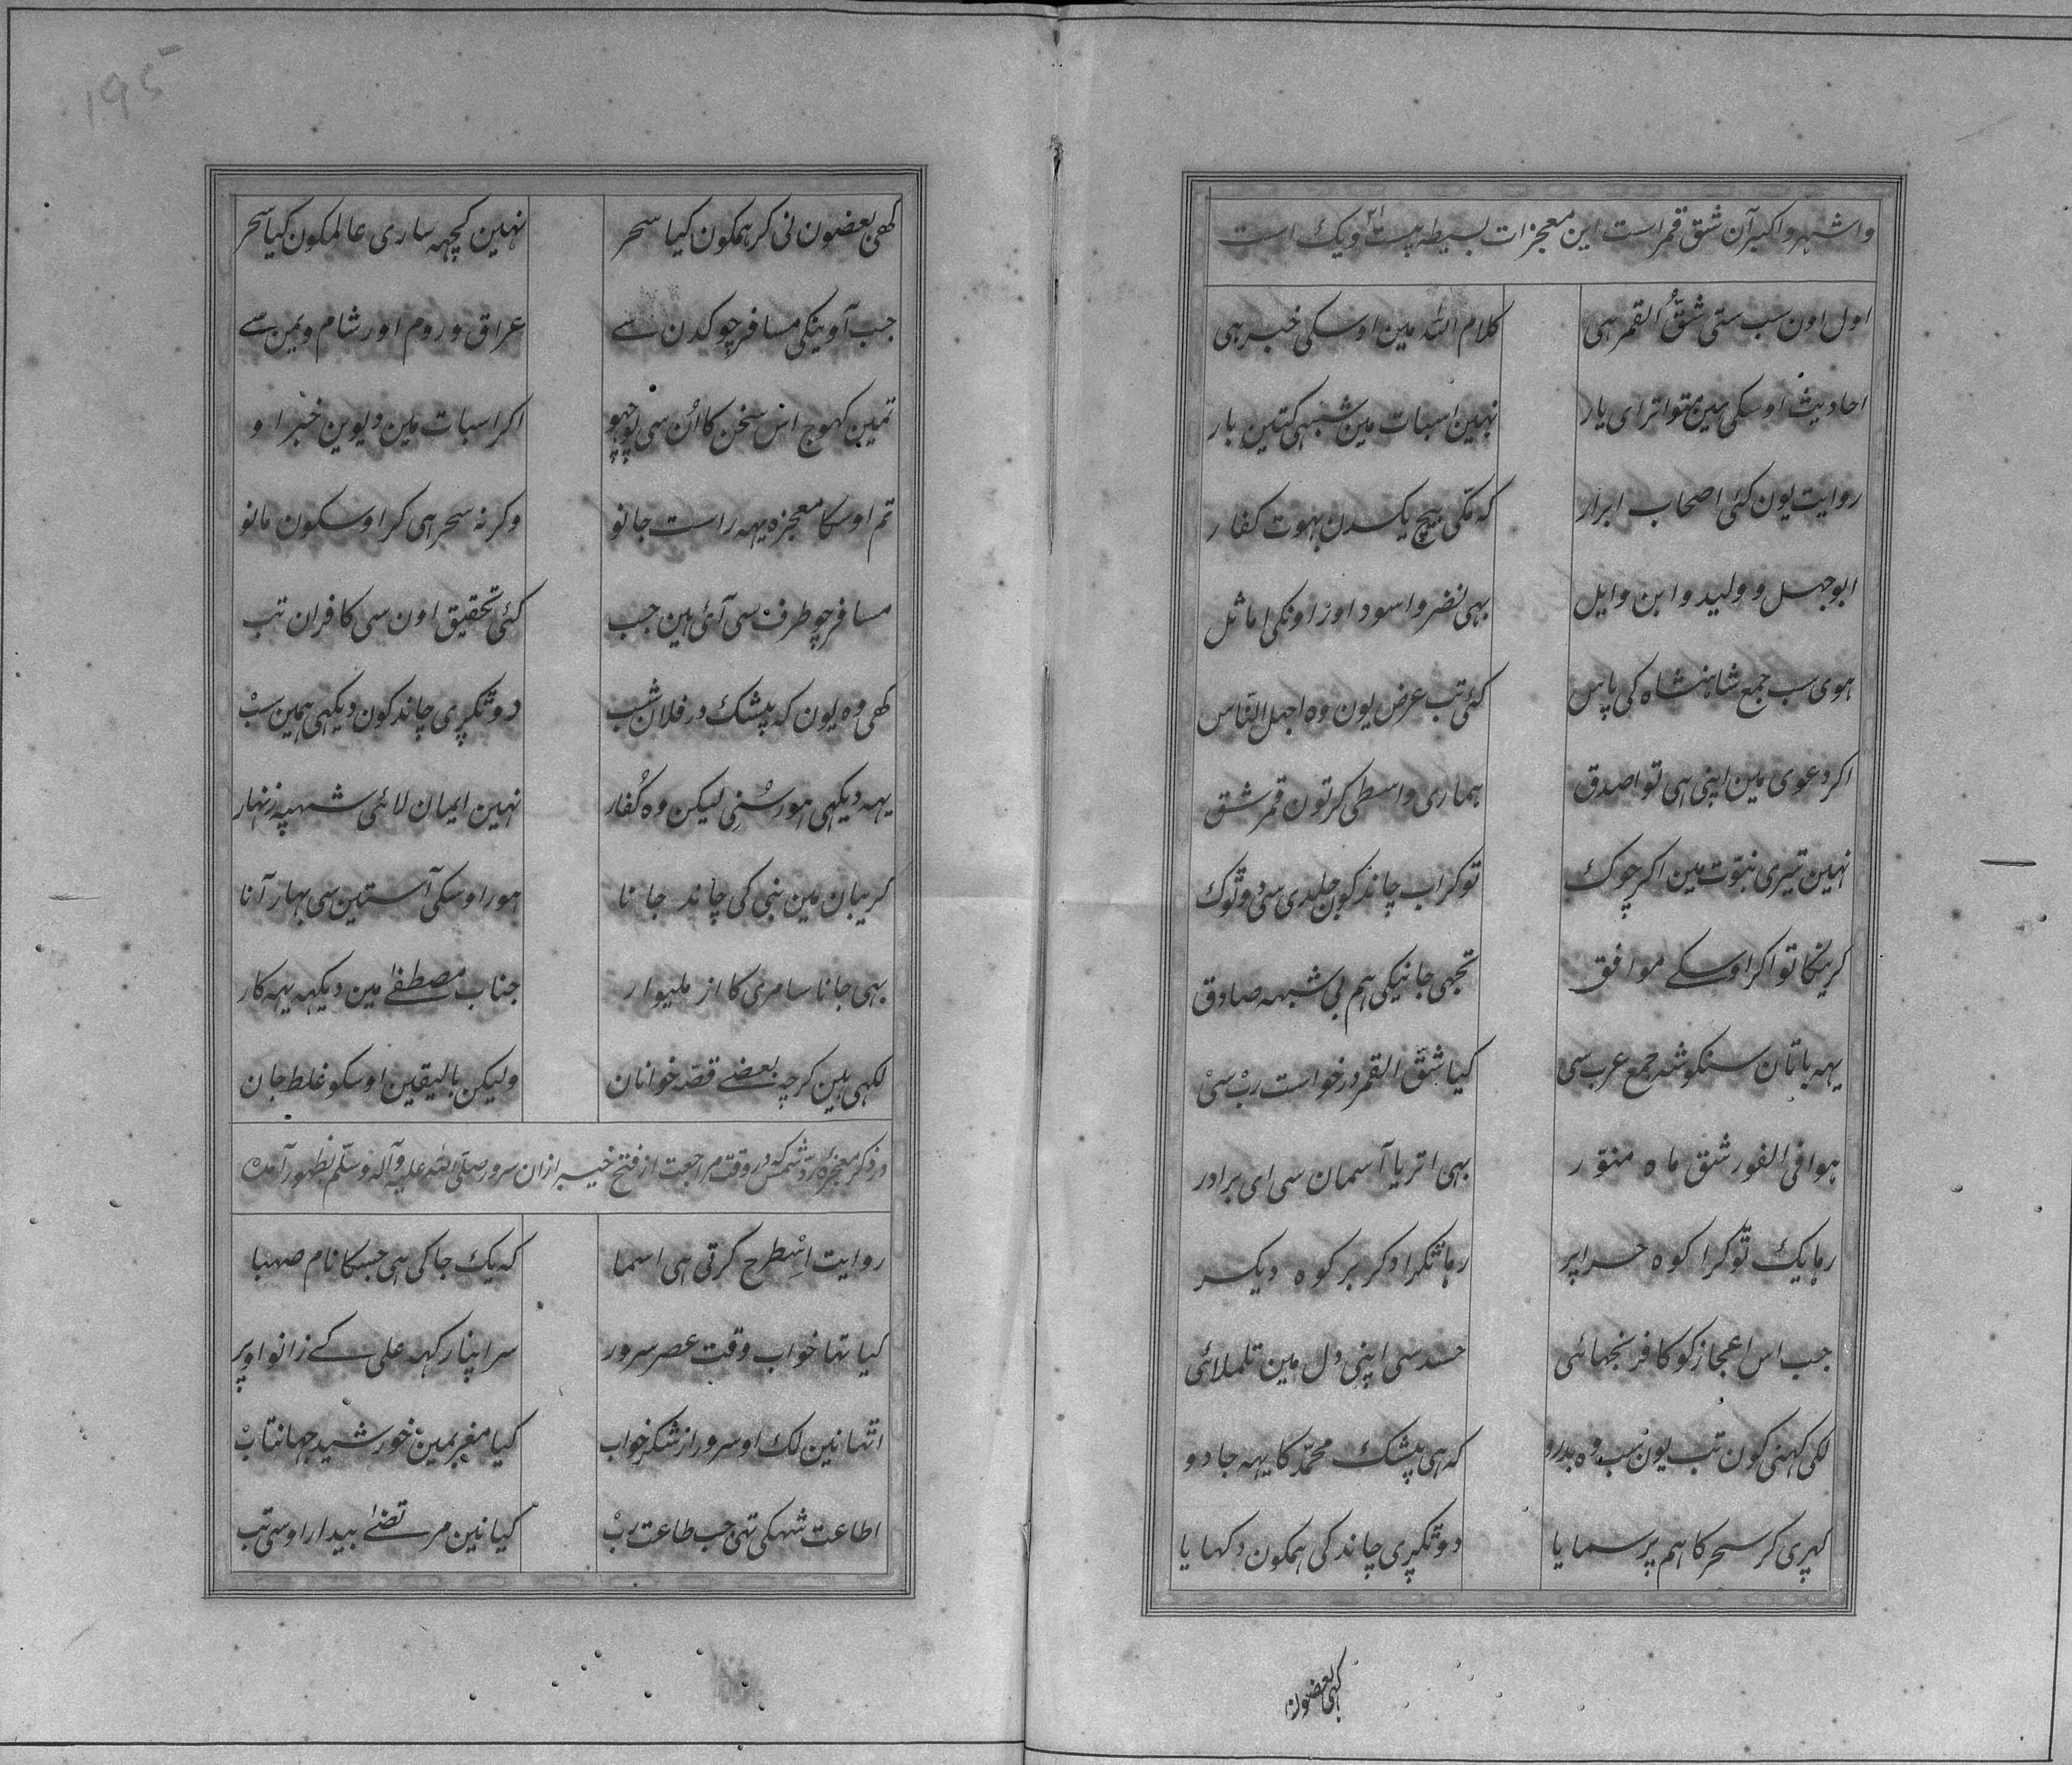 واشهر و اکبر آن شق قمر است این معجزات بسیطه بیست و یک است ۲۱
اول اون سب ستی شقّ القمر هی کلام اللّه مین اوسکی خبر هی
احادیث اوسکی هین متواتر ای یار نهین اسبات مین شبهی کتین بار
روایت یون کئی اصحاب ابرار که مکّی بیچ یکدن بهوت کفار
ابوجهل و ولید و ابن وایل بهی نضر و اسود اور اونکی اماثل
هوی سب جمع شاهنشاه کی پاس کئی تب عرض یون وه اجهل الناس
اکر دعوی مین اپنی هی تو اصدق هماری واسطی کر تون قمر شق
نهین تیری نبوّت مین اکر چوک تو کر اب چاند کون جلدی سی دو ٹوک
کریکا تو اکر اوسکے موافق تجهی جانیکی هم بی شبهه صادق
یهه باتان سنکو شه جمع عرب سی کیا شقّ القمر درخواست ربْ سیْ
هوا فی الفور شق ماه منوّر بهی اتریا آسمان سی ای برادر
رها یک ٹوکرا کوه حرا پر رها ٹکرا دکر بر کوه دیکر
جب اس اعجاز کو کافر نجهائی حسد سی اپنی دل مین تلملائی
لکی کهنی کون تب یون سب وه بدرو که هی بیشک محمّد کا یهه جادو
کهری کر سحر کا هم پر سمایا دو ٹکری چاند کی همکون دکهایا
کهی بعضون
195
کهی بعضون نی کر همکون کیا سحر نهین کچهه ساری عالمکون کیا سحر
جب آوینکی مسافر چوکدن سے عراق و روم اور شام و یمن سے
تمین کهوج اس سخن کا اُن سی پوچهو اکر اسبات مین دیوین خبر او
تم اوسکا معجزه یهه راست جانو وکرنه سحر هی کر اوسکون مانو
مسافر چوطرف سی آئی هین جب کئی تحقیق اون سی کافران تب
کهی وه یون که بیشک در فلان شب دو ٹکری چاند کون دیکهی همین سبْ
یهه دیکهی هور سُنی لیکن وه کُفار نهین ایمان لائی شهپه زنهار
کریبان مین نبی کی چاند جانا هور اوسکی آستین سی بهار آنا
بهی جانا سامری کا از ملیبار جناب مصطفےٰ مین دیکهه یهه کار
لکهی هین کرچه بعضے قصّه خوانان ولیکن بالیقین اوسکو غلط جان
در ذکر معجزه ردّ شمس که در وقت مراجعت از فتح خیبر ازان سرور صلی اللّه علیه وآله وسلّم بظهور آمده
روایت اِسْطرح کرتی هی اسما که یک جاکی هی جسکا نام صهبا
کیا تها خواب وقت عصر سرور سر اپنا رکهه علی کے زانو اوپر
اتها نین لک او سرور از شکر خواب کیا مغربمین خورشید جهانتابْ
اطاعت شهکی تهی جب طاعت ربْ کیا نین مرتضےٰ بیدار اوسی تب